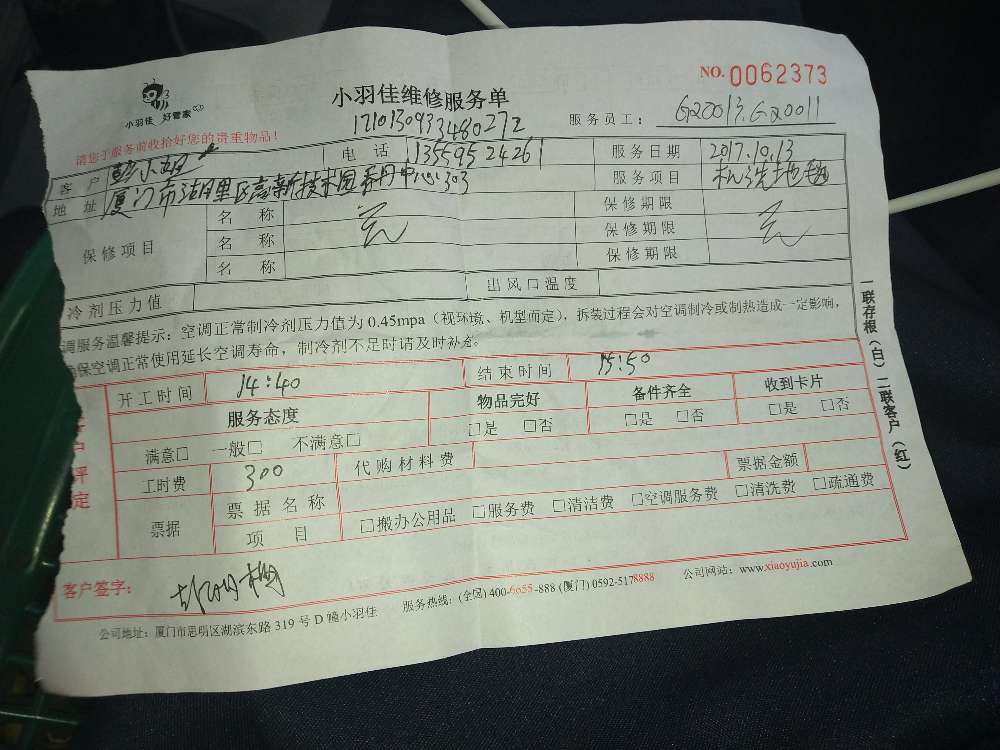 NO. 0062373
小羽佳 好管家
小羽佳维修服务单
1710130933480272
服务员工： G20013.G20011
请您于服务前收拾好您的贵重物品！
客户 彭小姐 电话 13559524261 服务日期 2017.10.13
地址 厦门市湖里区高新技术园 中心303 服务项目 机洗地毯
保修项目 名称 无 保修期限 无
名称 保修期限
名称 保修期限
冷剂压力值 出风口温度
调服务温馨提示：空调正常制冷剂压力值为 0.45mpa（视环境、机型而定），拆装过程会对空调制冷或制热造成一定影响，
保空调正常使用延长空调寿命，制冷剂不足时请及时补充。
开工时间 14:40 结束时间 15:50
服务态度 物品完好 备件齐全 收到卡片
满意□ 一般□ 不满意□ □是 □否 □是 □否 □是 □否
评定
工时费 300 代购材料费 票据金额
票据 票据名称
项目 □搬办公用品 □服务费 □清洁费 □空调服务费 □清洗费 □疏通费
客户签字：
公司地址：厦门市思明区湖滨东路 319 号 D 幢小羽佳 服务热线：(全国) 400-6655-888 (厦门) 0592-5178888 公司网站：www.xiaoyujia.com
一联存根（白）二联客户（红）